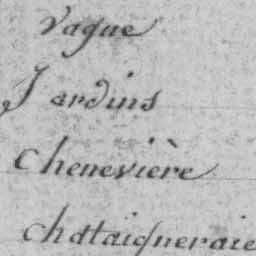 Vague
Jardins
Chenevière
Chataigneraie